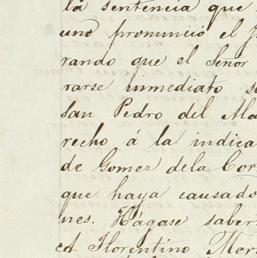 la sentencia que
uno pronunció el J
rando que el Señor
rarse inmediato s
San Pedro del Ala
recho á la indica
de Gomez dela Cor
que haya causado
nes. Hágase saber
Florentino Mer